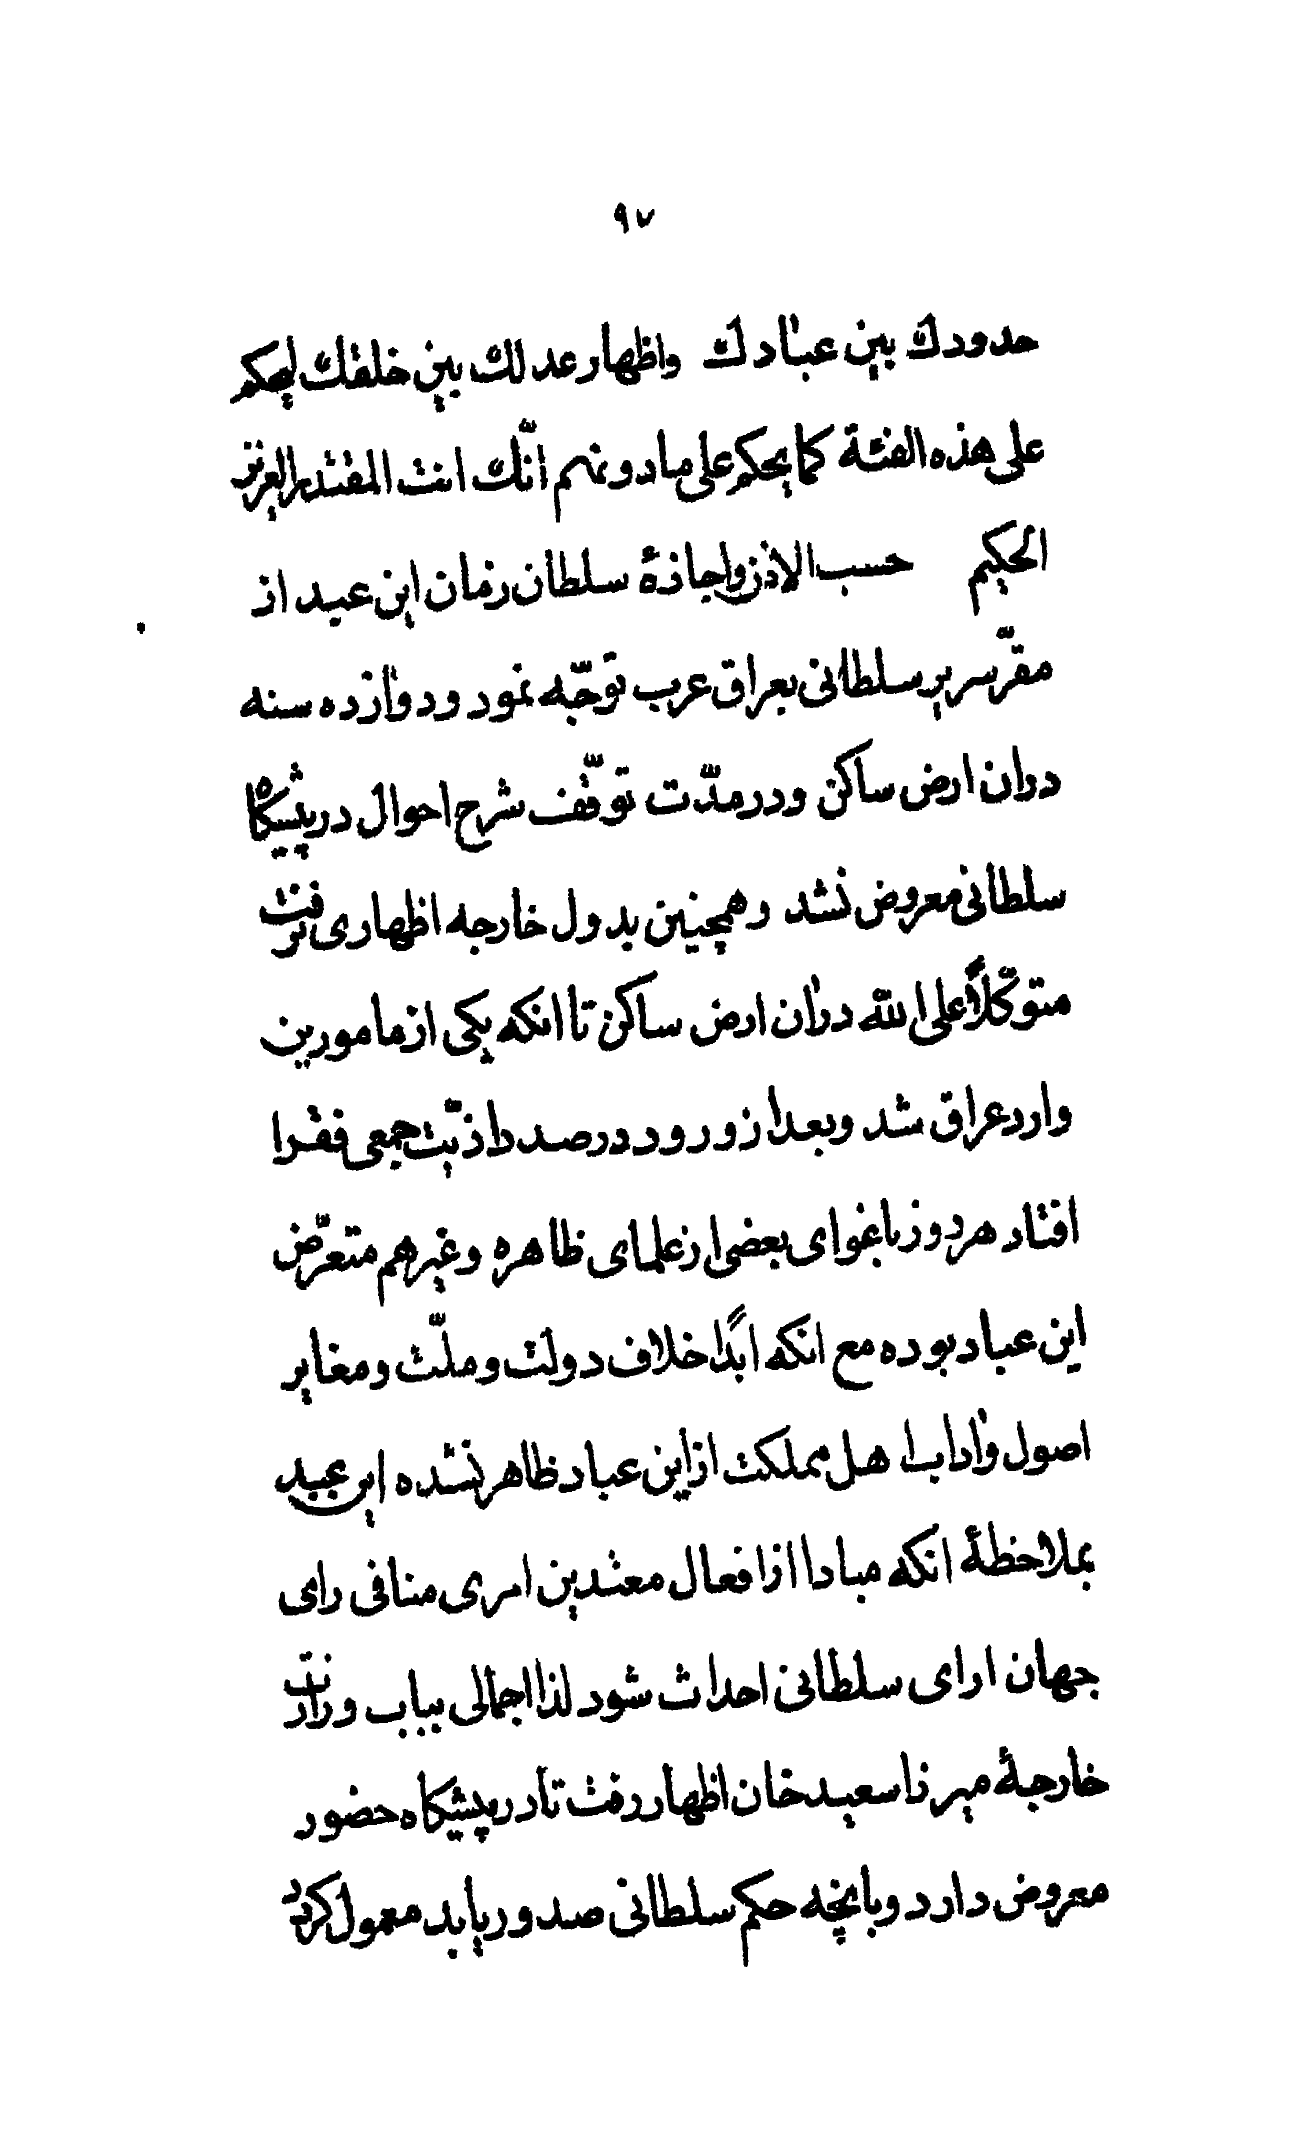 ٩٧
حدودك بين عبادك واظهار عدلك بين خلقك ليحكم
على هذه الفئة كما يحكم على ما دونهم انّك انت المقتدر العزيز
الحكيم حسب الاذن واجازهٔ سلطان زمان اين عبد از
مقرّ سرير سلطانى بعراق عرب توجّه نمود و دوازده سنه
دران ارض ساكن و در مدّت توقّف شرح احوال در پيشگاه
سلطانى معروض نشد و همچنين بدول خارجه اظهارى نرفت
متوكّلاً على الله دران ارض ساكن تا انكه يكى از مامورين
وارد عراق شد و بعد از ورود در صدد اذيّت جمعى فقرا
افتاد هر روز باغواى بعضى از علماى ظاهره و غيرهم متعرّض
اين عباد بوده مع انكه ابدًا خلاف دولت و ملّت و مغاير
اصول و اداب اهل مملكت از اين عباد ظاهر نشده اين عبد
بملاحظهٔ انكه مبادا از افعال معتدين امرى منافى راى
جهان اراى سلطانى احداث شود لذا اجمالى بباب وزارت
خارجهٔ ميرزا سعيد خان اظهار رفت تا در پيشگاه حضور
معروض دارد و بانچه حكم سلطانى صدور يابد معمول گردد